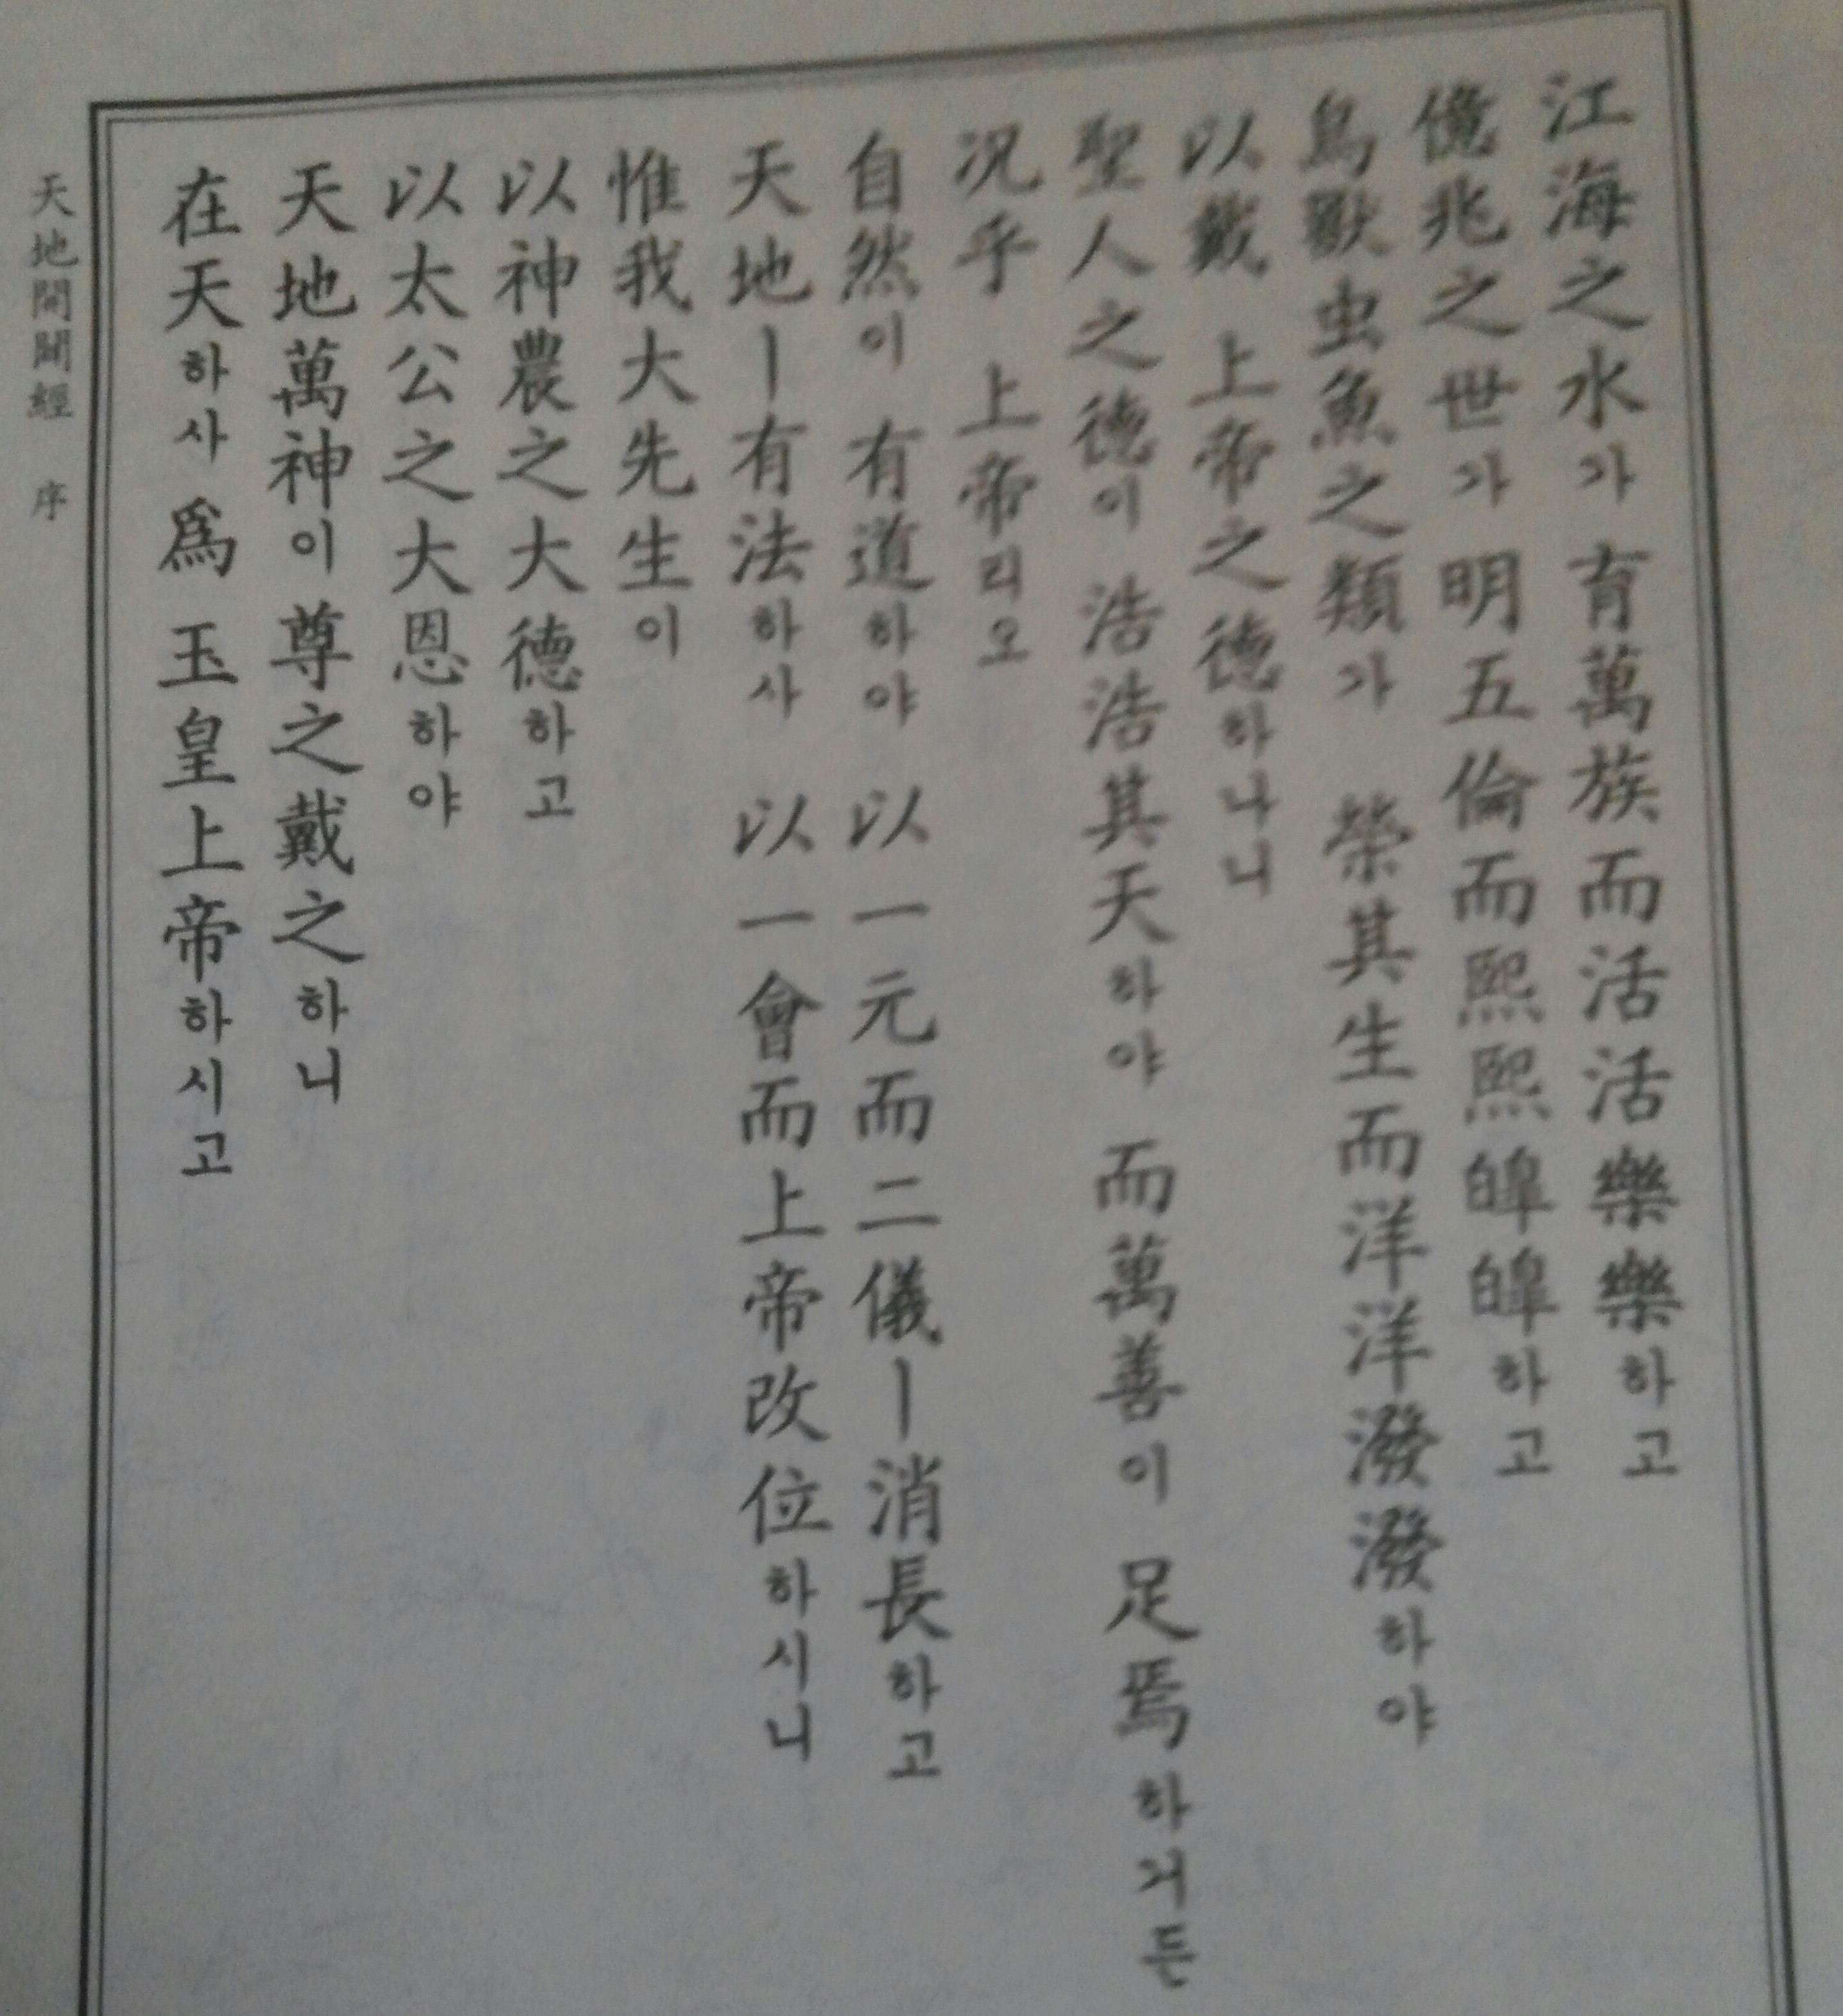 江海之水가 育萬族而活活樂樂하고
億兆之世가 明五倫而熙熙皥皥하고
鳥獸虫魚之類가 榮其生而洋洋潑潑하야
以戴 上帝之德하나니
聖人之德이 浩浩其天하야 而萬善이 足焉하거든
况乎 上帝리오
自然이 有道하야 以一元而二儀ㅣ消長하고
天地ㅣ有法하사 以一會而上帝改位하시니
惟我大先生이
以神農之大德하고
以太公之大恩하야
天地萬神이 尊之戴之하니
在天하사 爲 玉皇上帝하시고
天地開闢經 序